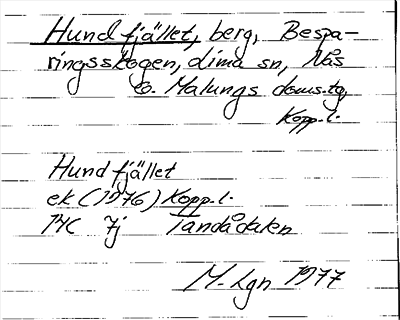 Hundfjället, berg, Bespa-
ringsskogen, Lima sn, Nås
o. Malungs doms.tg,
Kopp.l.
Hundfjället
ek (1976) Kopp.l.
14C 7j Tandådalen
M-Lgn 1977